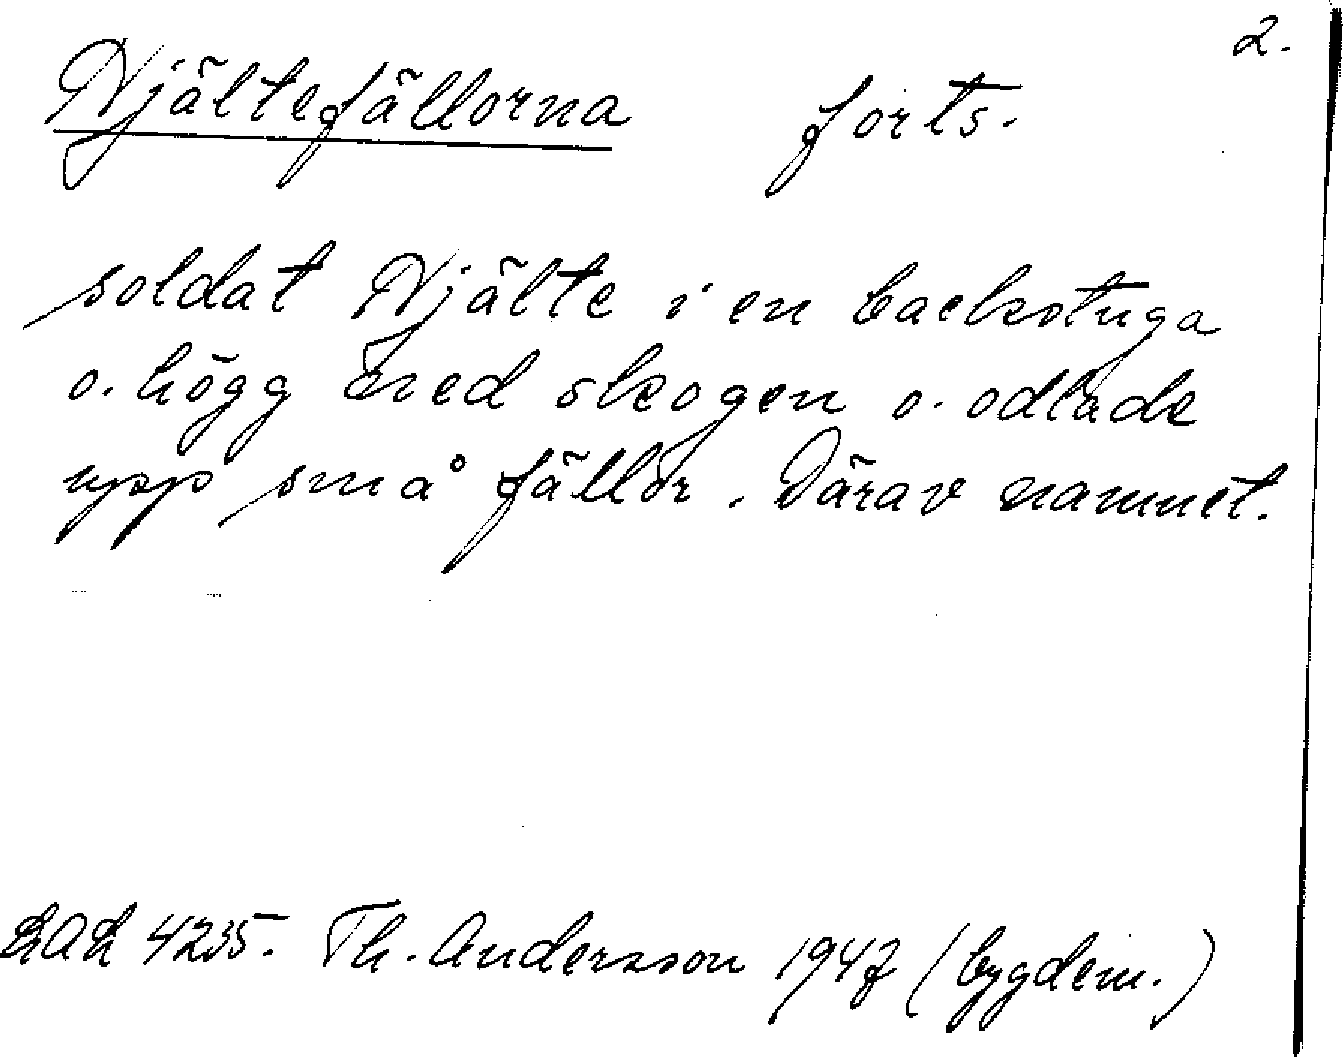 2.
Hjältefällorna forts.
soldat Hjälte i en backstuga
o. högg ned skogen o. odlade
upp små fällor. Därav namnet.
LAL 4235. Th. Andersson 1947 (bygdem.)